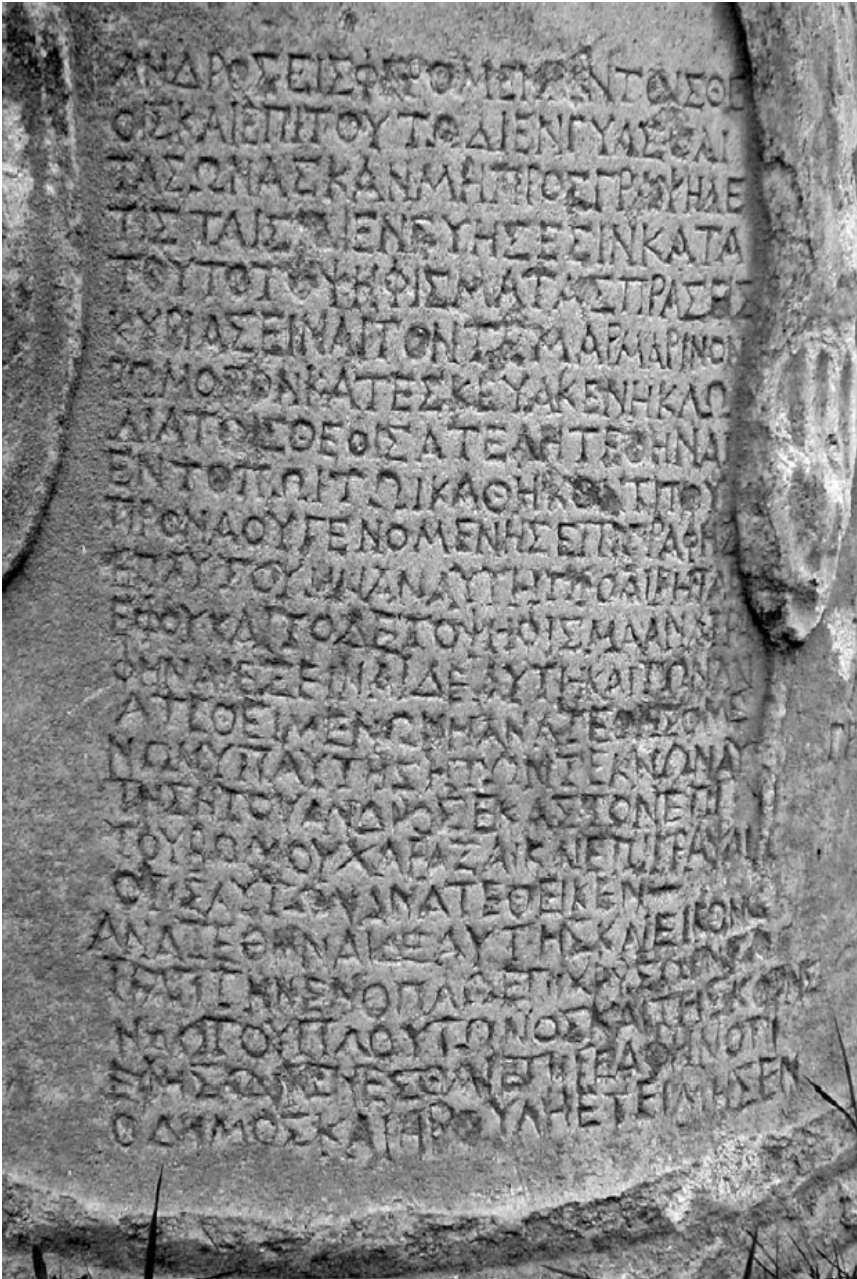 ΑΝΔΡΟΣΕΙΣΦΕΡΟΜΕΝΩΝΤΟΙΣΘΕ
ΟΙΣΚΑΙΕΠΙΤΟΥΤΩΔΙΕΝΓΥΑΣΘΑΙ
ΤΑΣΩΝΑΣΚΑΝΜΗΠΡΟΣΓΡΑΦΗΔΕ
ΤΙΣΤΑΙΣΔΙΕΝΓΥΗΣΕΣΙΝΚΑΤΑ
ΤΟΥΤΟΤΟΥΗΦΙΣΜΑΤΑΣΠΡΑΣΕΙΣ
ΚΥΡΙΑΣΕΙΝΑΙΤΟΝΤΕΜΑΡΜΑΡΙΝΟΝ
ΒΩΜΟΝΟΝΚΑΤΕΣΚΕΥΑΚΕΝΗΚΛΩ
ΔΙΑΤΟΙΣΘΕΟΙΣΑΤΕΛΗΤΕΘΗΝΑΙ
ΕΝΤΟΠΩΙΤΩΙΚΑΘΗΚΟΝΤΙΠΟΥ
ΠΡΟΝΑΟΥΓΕΝΟΜΕΝΗΣΕΠΙΓΡΑΦΗΣ
ΕΠΑΥΤΟΥΗΝΑΝΑΥΤΗΠΡΟΑΙΡΗΤΑΙ
ΕΦΟΥΚΑΙΤΟΔΕΤΟΥΗΦΙΣΜΑΑΝΑΓΡΑ
ΦΗΝΑΙΕΞΕΙΝΑΙΔΕΑΥΤΗΚΑΙΤΩΝΑΝ
ΑΤΕΘΕΙΜΕΝΩΝΗΑΝΑΤΕΘΗΣΟΜΕ
ΝΩΝΥΠΑΥΤΗΣΗΤΩΝΤΕΚΝΩΝΑΥ
ΤΗΣΗΤΟΥΑΝΔΡΟΣΕΚΑΣΤΟΝΕΠΙ
ΤΟΥΒΩΜΟΥΧΑΡΑΞΑΙΚΑΙΕΠΙΓΡΑΨΑΙ
ΟΤΙΣΑΥΤΩΝΑΝΑΤΕΘΕΙΚΕΝ
ΑΝΑΤΕΘΗΝΑΙΔΕΑΥΤΗΣΚΑΙΕΙΚΟΝΑ
ΓΡΑΠΤΗΝΕΝΟΠΛΩΕΠΙΧΡΥΣΩ
ΝΑΩΤΟΥΠΛΟΥΤΩΝΟΣΚΑΙΤΗΣΚΟΡΗΣ
ΟΔΗΜΟΣΚΑΙΗΒΟΥΛΗΕΤΕΙΜΗΣΕΝ